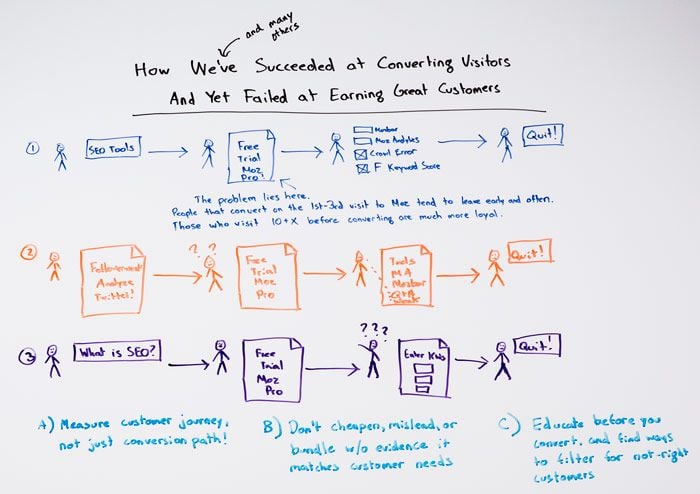 and many
others
How We've Succeeded at Converting Visitors
And Yet Failed at Earning Great Customers
1
SEO Tools
Free
Trial
Moz
Pro!
Mozbar
Moz Analytics
Crawl Error
F Keyword Score
Quit!
The problem lies here.
People that convert on the 1st-3rd visit to Moz tend to leave early and often.
Those who visit 10+X before converting are much more loyal.
2
Followerwonk
Analyze
Twitter!
? ?
Free
Trial
Moz
Pro
Tools
MA
Mozbar
Q+A
Quit!
3
What is SEO?
Free
Trial
Moz
Pro
? ? ?
Enter KWs
Quit!
A) Measure customer journey,
not just conversion path!
B) Don't cheapen, mislead, or
bundle w/o evidence it
matches customer needs
C) Educate before you
convert, and find ways
to filter for not-right
customers